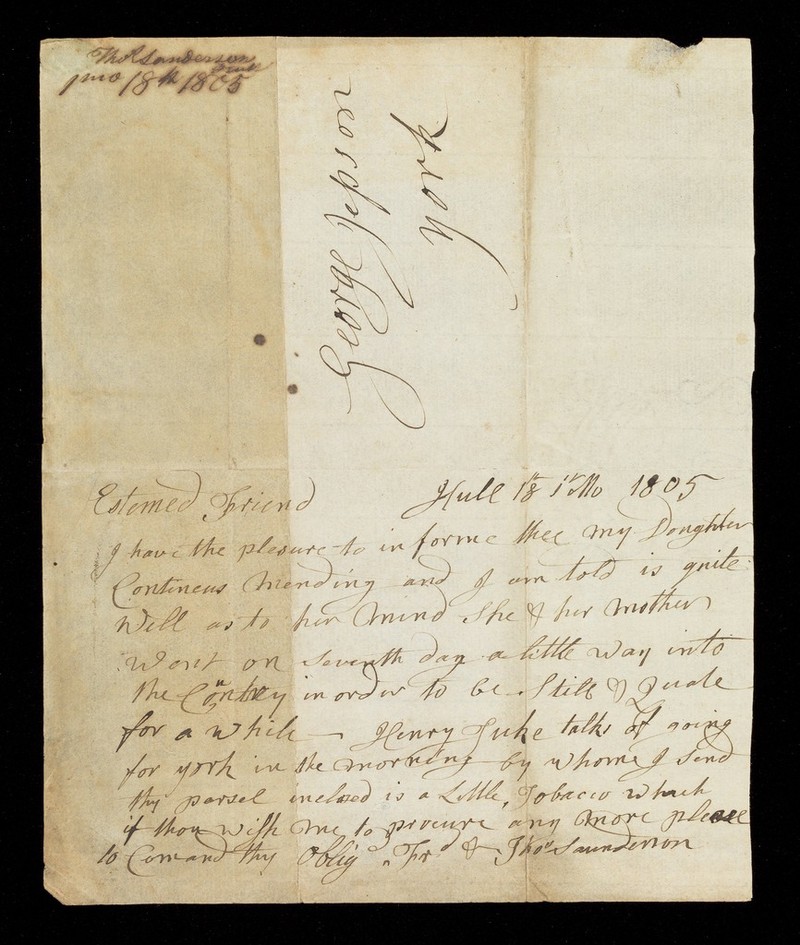 Thos. Sanderson
1mo 18th 1805
York
George Jepson
Estemed Friend Hull 18th 1st Mo 1805
I have the plesure to informe thee my Doughter
Contineus mending and I am told is quite
well as to her mind She & her mother
Went on seventh day a little way into
the Contrey in order to be Still & Quale
for a while Henry Tuke talks of going
for york in the morning by whome I send
thy parsel inclosed is a Little Tobacco which
if thou wish me to procure any more please
to Comand thy Oblig'd Frd & Thos. Saunderson